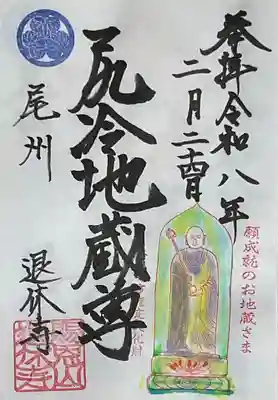 奉拝 令和八年
二月二十四日
尻冷地蔵尊
尾州
退休寺
願成就のお地蔵さま